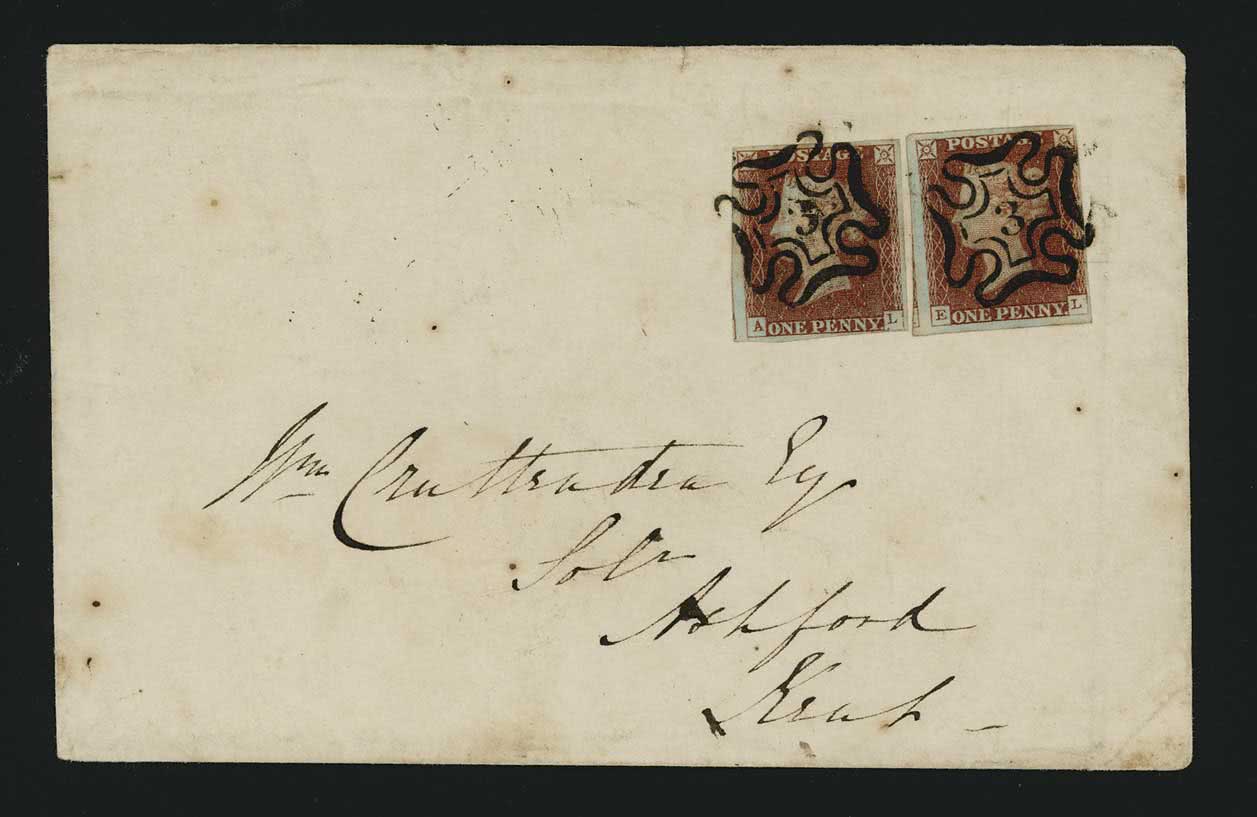 POSTAGE
3
A ONE PENNY. L
POSTAGE
3
E ONE PENNY. L
Wm Cruttenden Esq
Solr
Ashford
Kent